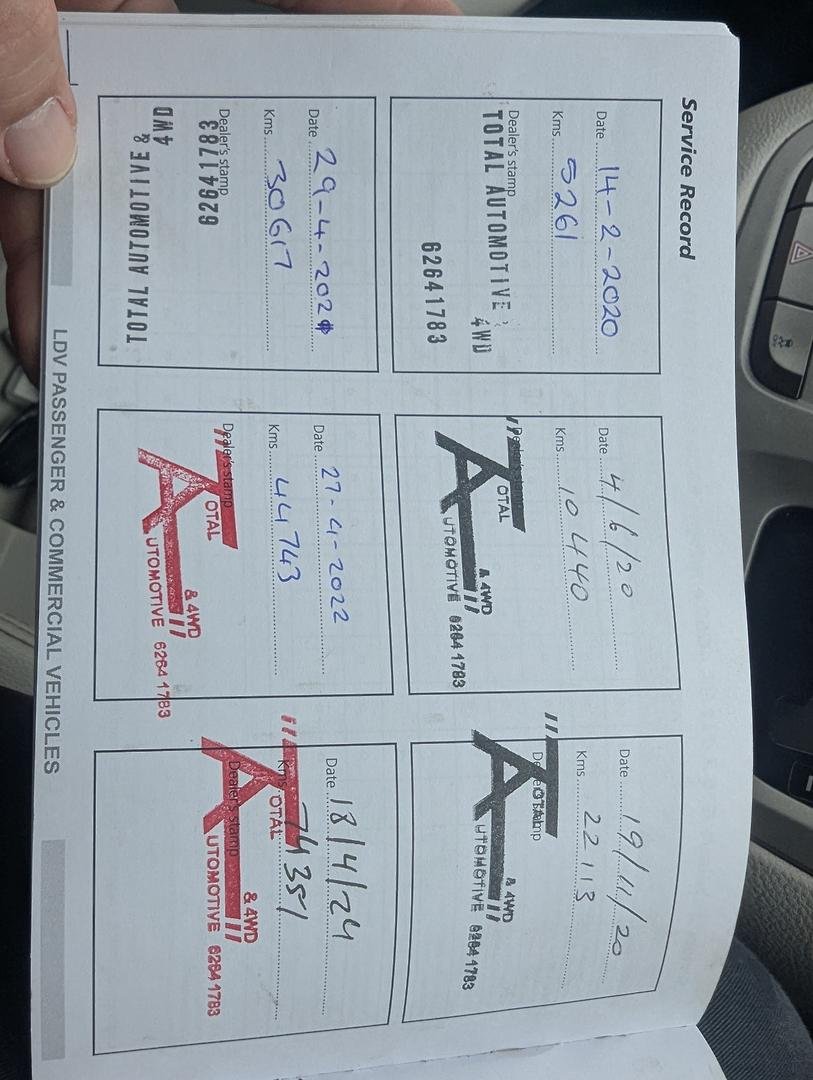 Service Record
Date 14-2-2020
Kms 5261
Dealer's stamp
TOTAL AUTOMOTIVE &
4WD
62641783
Date 4/6/20
Kms 10440
TOTAL
AUTOMOTIVE
& 4WD
6264 1783
Date 19/11/20
Kms 22113
Dealer's stamp
TOTAL
AUTOMOTIVE
& 4WD
6264 1783
Date
Kms 30617
Dealer's stamp
62641783
TOTAL AUTOMOTIVE &
4WD
Date 27-4-2022
Kms 44743
Dealer's stamp
TOTAL
AUTOMOTIVE
& 4WD
6264 1783
Date 18/4/24
Kms 74351
Dealer's stamp
TOTAL
AUTOMOTIVE
& 4WD
6264 1783
LDV PASSENGER & COMMERCIAL VEHICLES